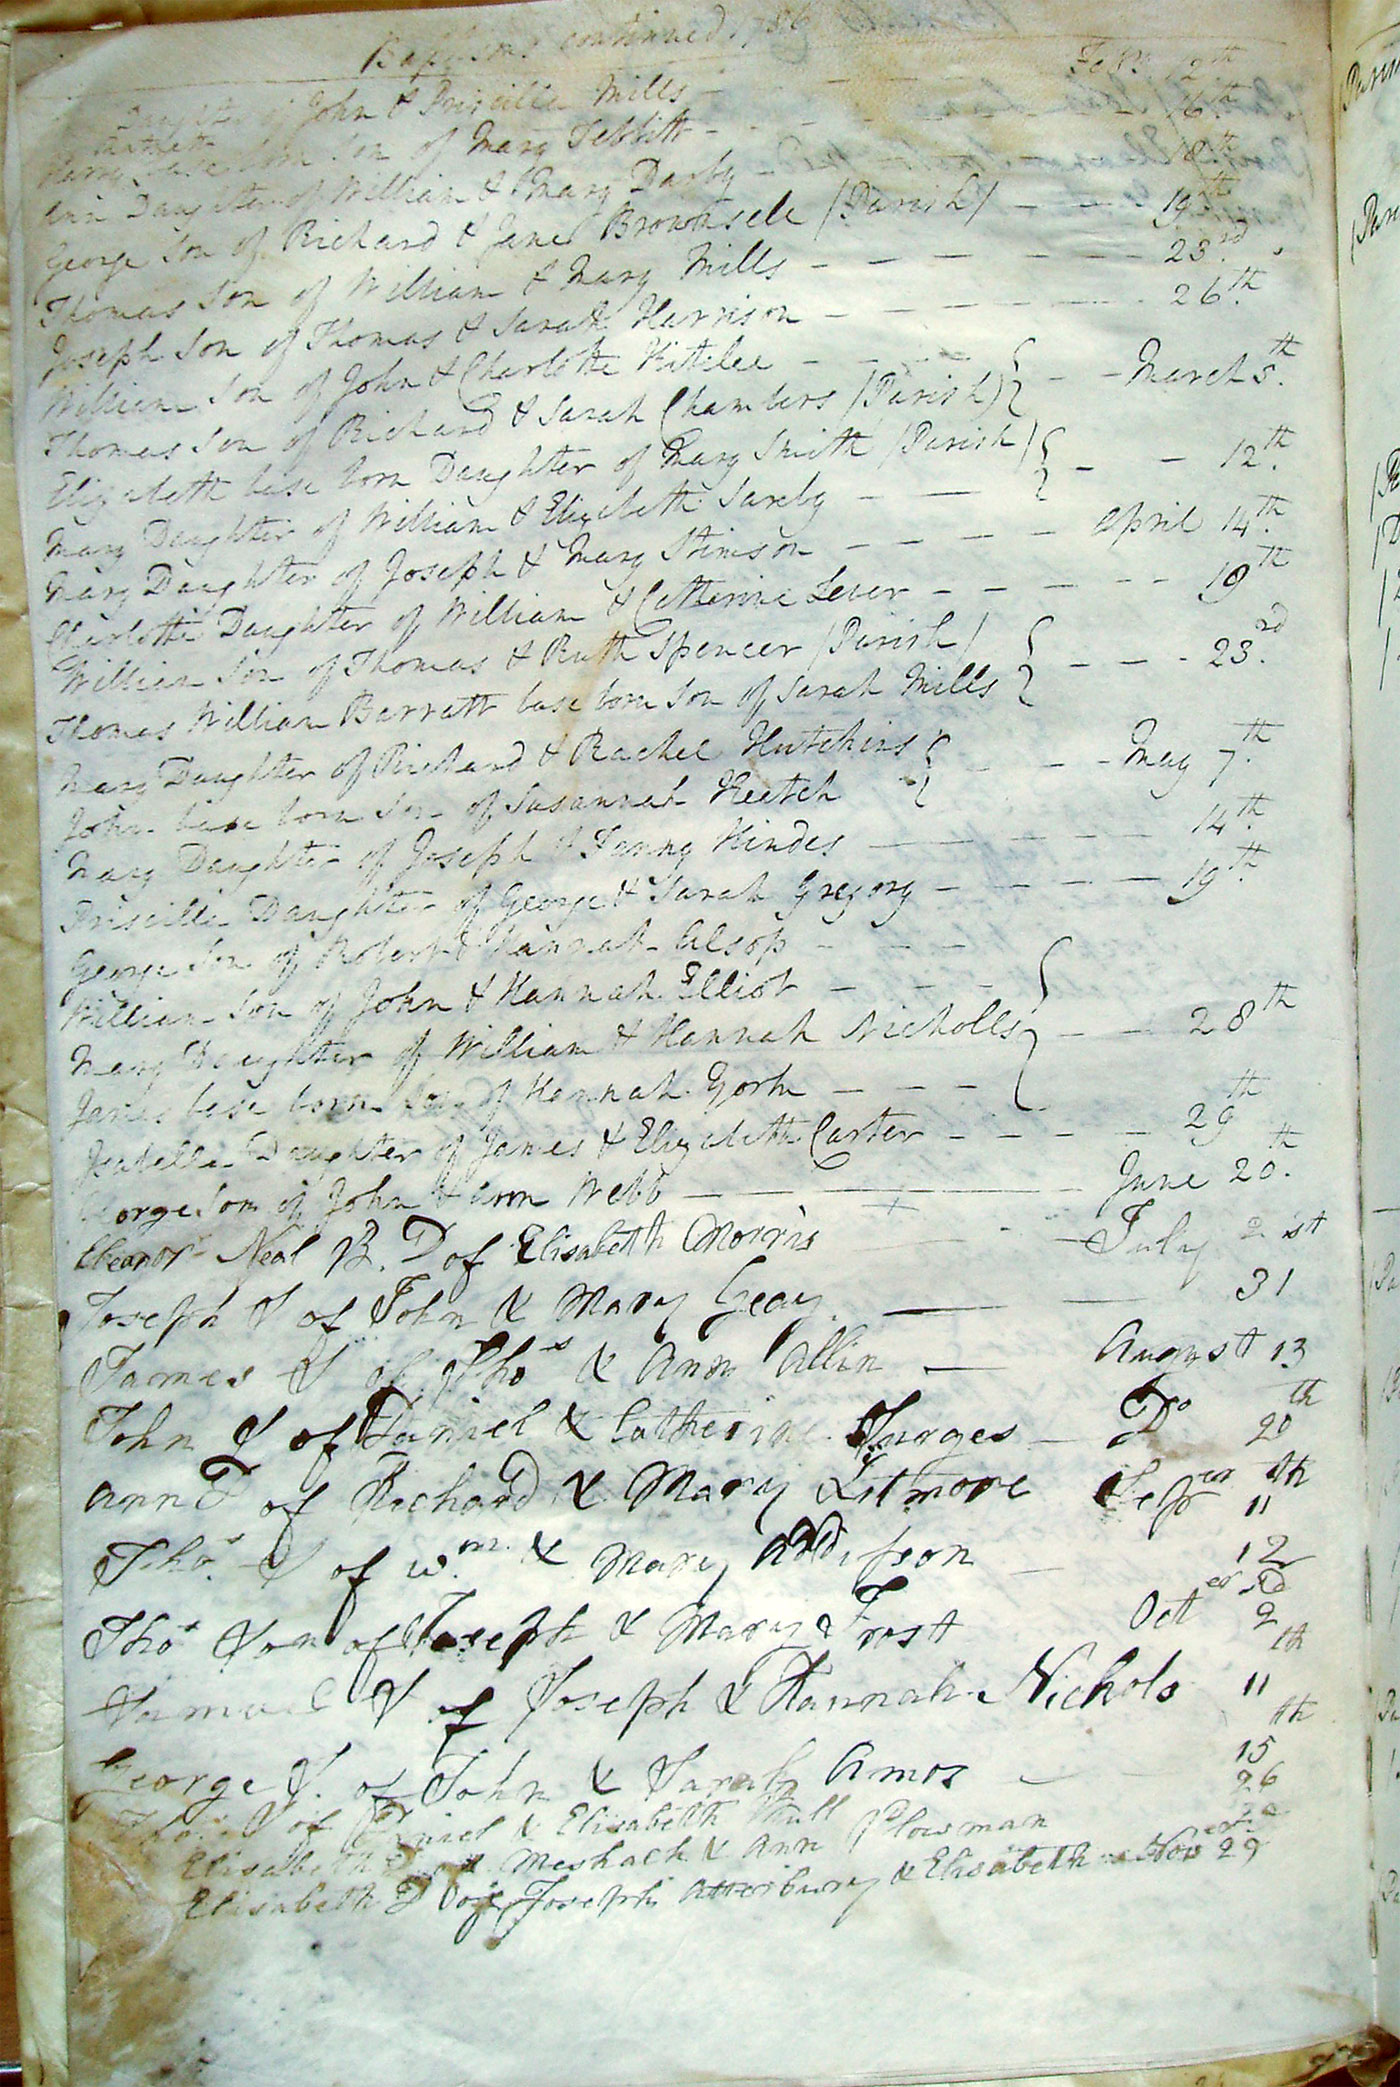 Baptisms continued 1786
Daughter of John & Priscilla Mills Feby. 12th
Harry base born Son of Mary Tebbitt - - - 16th
Ann Daughter of William & Mary Darby - 18th
George Son of Richard & Jane Brownsell (Parish) - - - 19th
Thomas Son of William & Mary Mills - - - - - - - 23rd.
Joseph Son of Thomas & Sarah Harrison - - - - - - 26th.
William Son of John & Charlotte - - - -
Thomas Son of Richard & Sarah Chambers (Parish) - - March 5th.
Elizabeth base born Daughter of Mary Smith (Parish)
Mary Daughter of William & Elizabeth - - - - - 12th.
Mary Daughter of Joseph & Mary Stimson - - - - - April 14th.
Charlotte Daughter of William & Catherine Lever - - - - - - 19th
William Son of Thomas & Ruth Spencer (Parish)
Thomas William Barratt base born Son of Sarah Mills - - - 23rd.
Mary Daughter of Richard & Rachel Hutchins
John base born Son of Susannah Keetch - - - May 7th.
Mary Daughter of Joseph & Fanny Hindes - - - - - 14th.
Priscilla Daughter of George & Sarah Gregory - - - - - 19th.
George Son of Robert & Hannah Alsop - - -
William Son of John & Hannah Elliot - - - -
Mary Daughter of William & Hannah Nicholls - - 28th
James base born Son of Hannah York - - -
Isabella Daughter of James & Elizabeth Carter - - - - - 29th
George Son of John & Ann Webb - - - - June 20th.
Eleanor Neal B. D of Elisabeth Morris - July 2 st
Joseph S of John & Mary Geary - - 31
James S of Thos & Ann Allin - August 13
John S of Daniel & Catherine Surges - Do 20th
Ann D of Richard & Mary Litmore Sepr 11th
Thos. S of Wm. & Mary Addisson - 12
Thos Son of Joseph & Mary Frost Octer 2nd
Samuel S of Joseph & Hannah Nichols 11th
George S. of John & Sarah Amos - 15th
Thos. S of Daniel & Elisabeth 26
Elisabeth D of Meshach & Ann Plowman
Elisabeth D of Joseph Atterbury & Elisabeth Nover 29